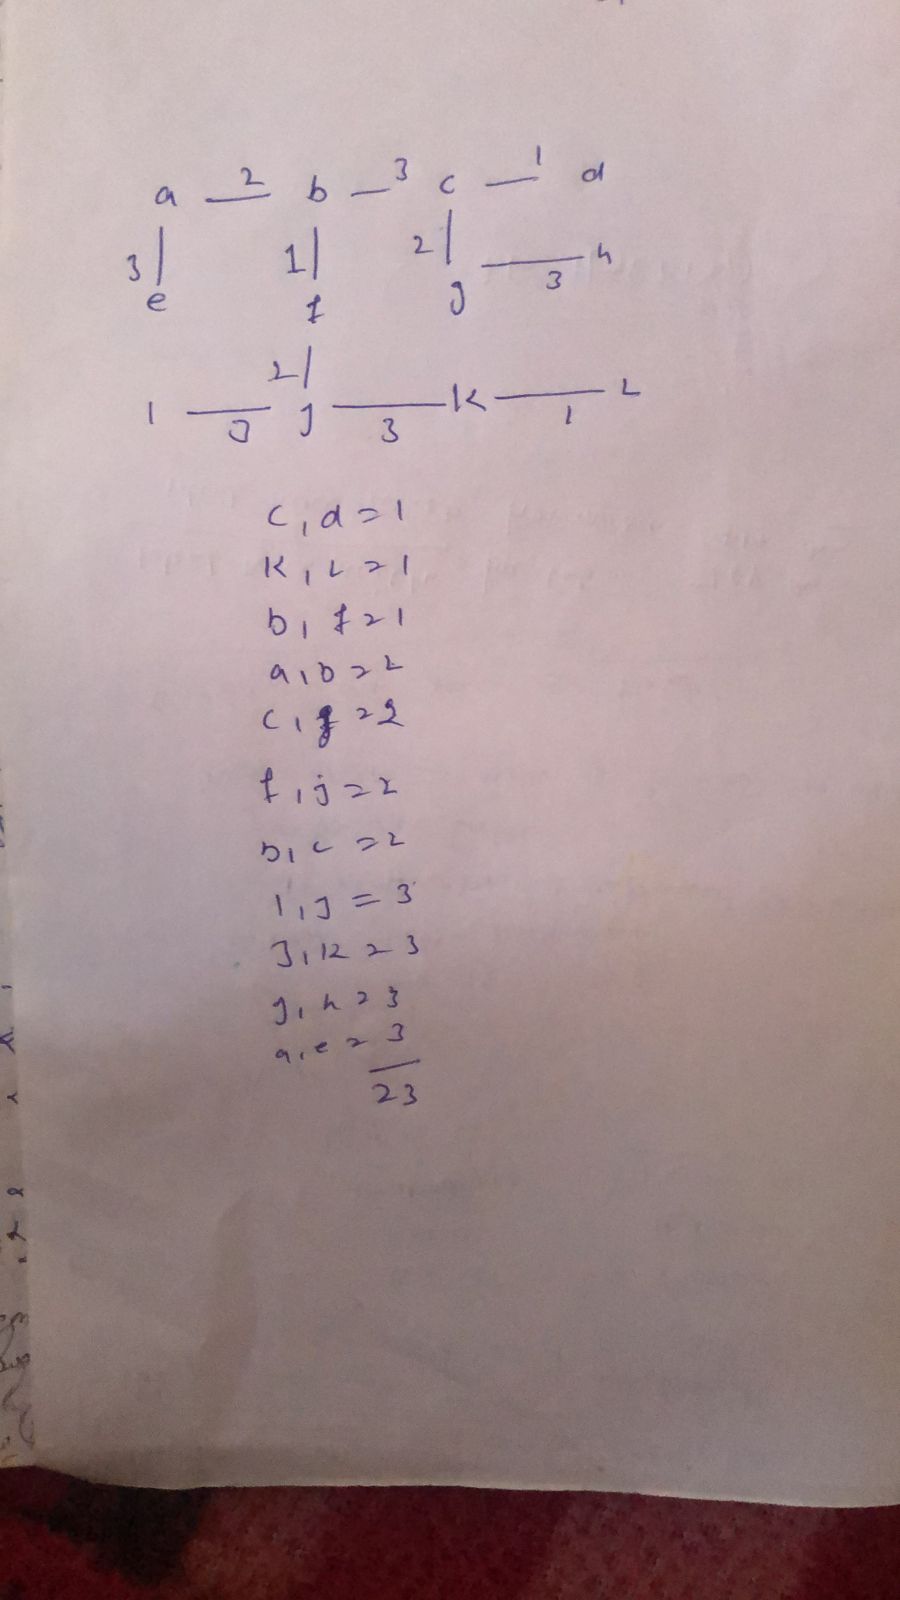 a 2 b 3 c 1 d
3 1 2 3 h
e f g
2
1 3 j 3 k 1 L
c, d = 1
K, L = 1
b, f = 1
a, b = 2
c, g = 2
f, j = 2
b, c = 2
1, J = 3
J, K = 3
g, h = 3
a, e = 3
23